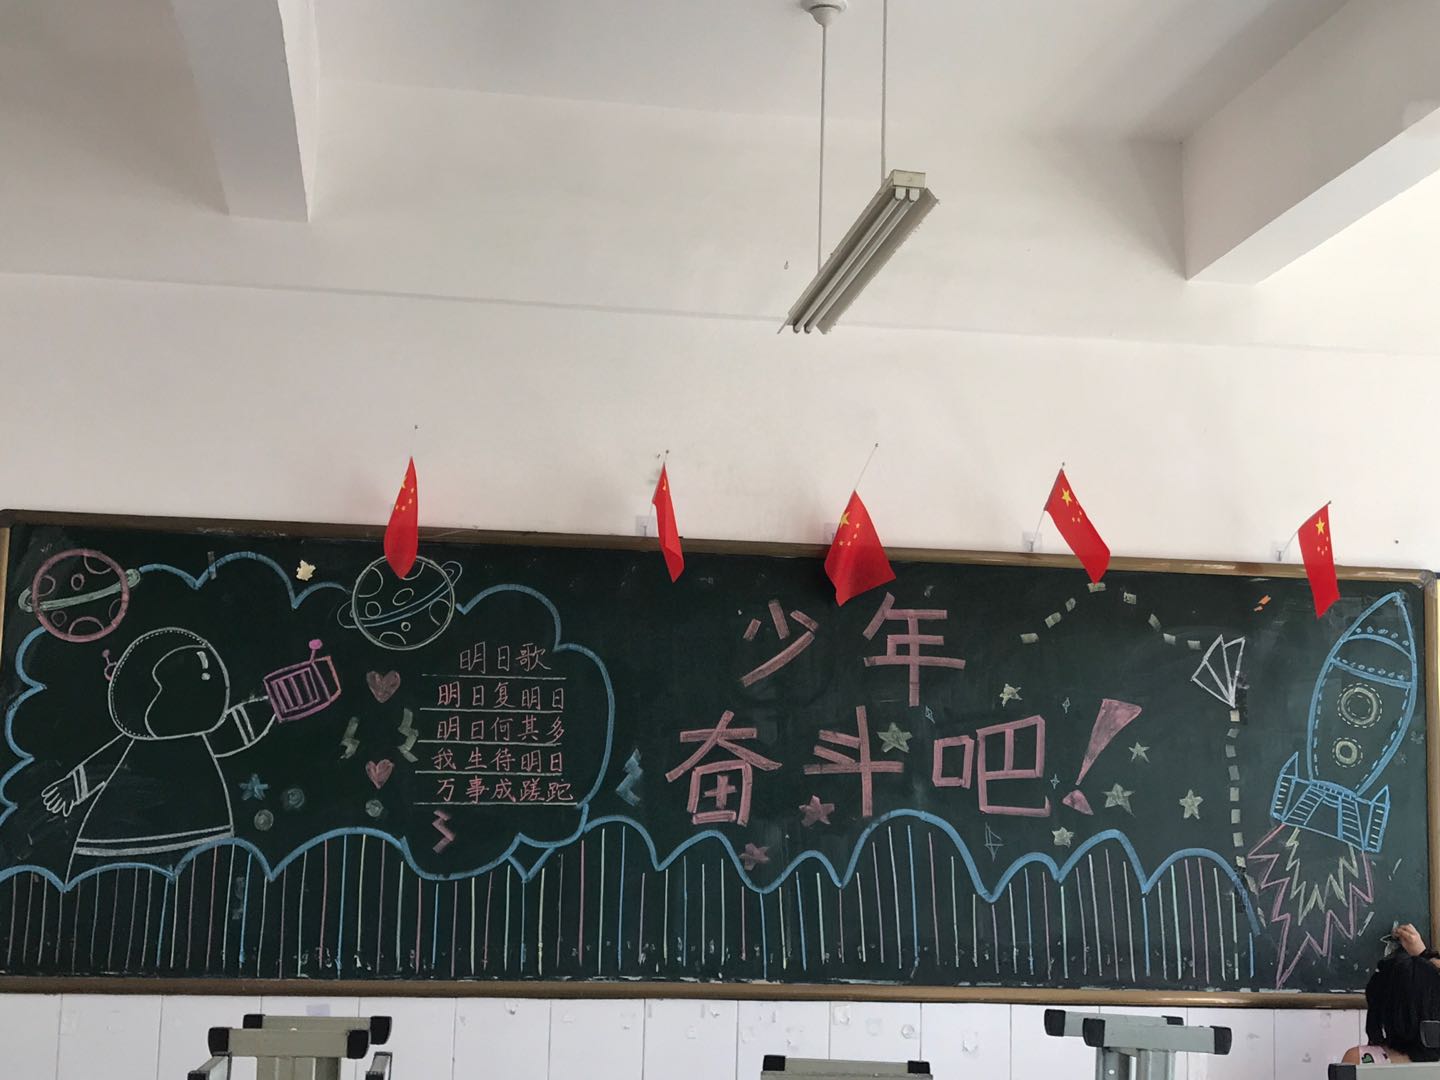 明日歌
明日复明日
明日何其多
我生待明日
万事成蹉跎
少年
奋斗吧!